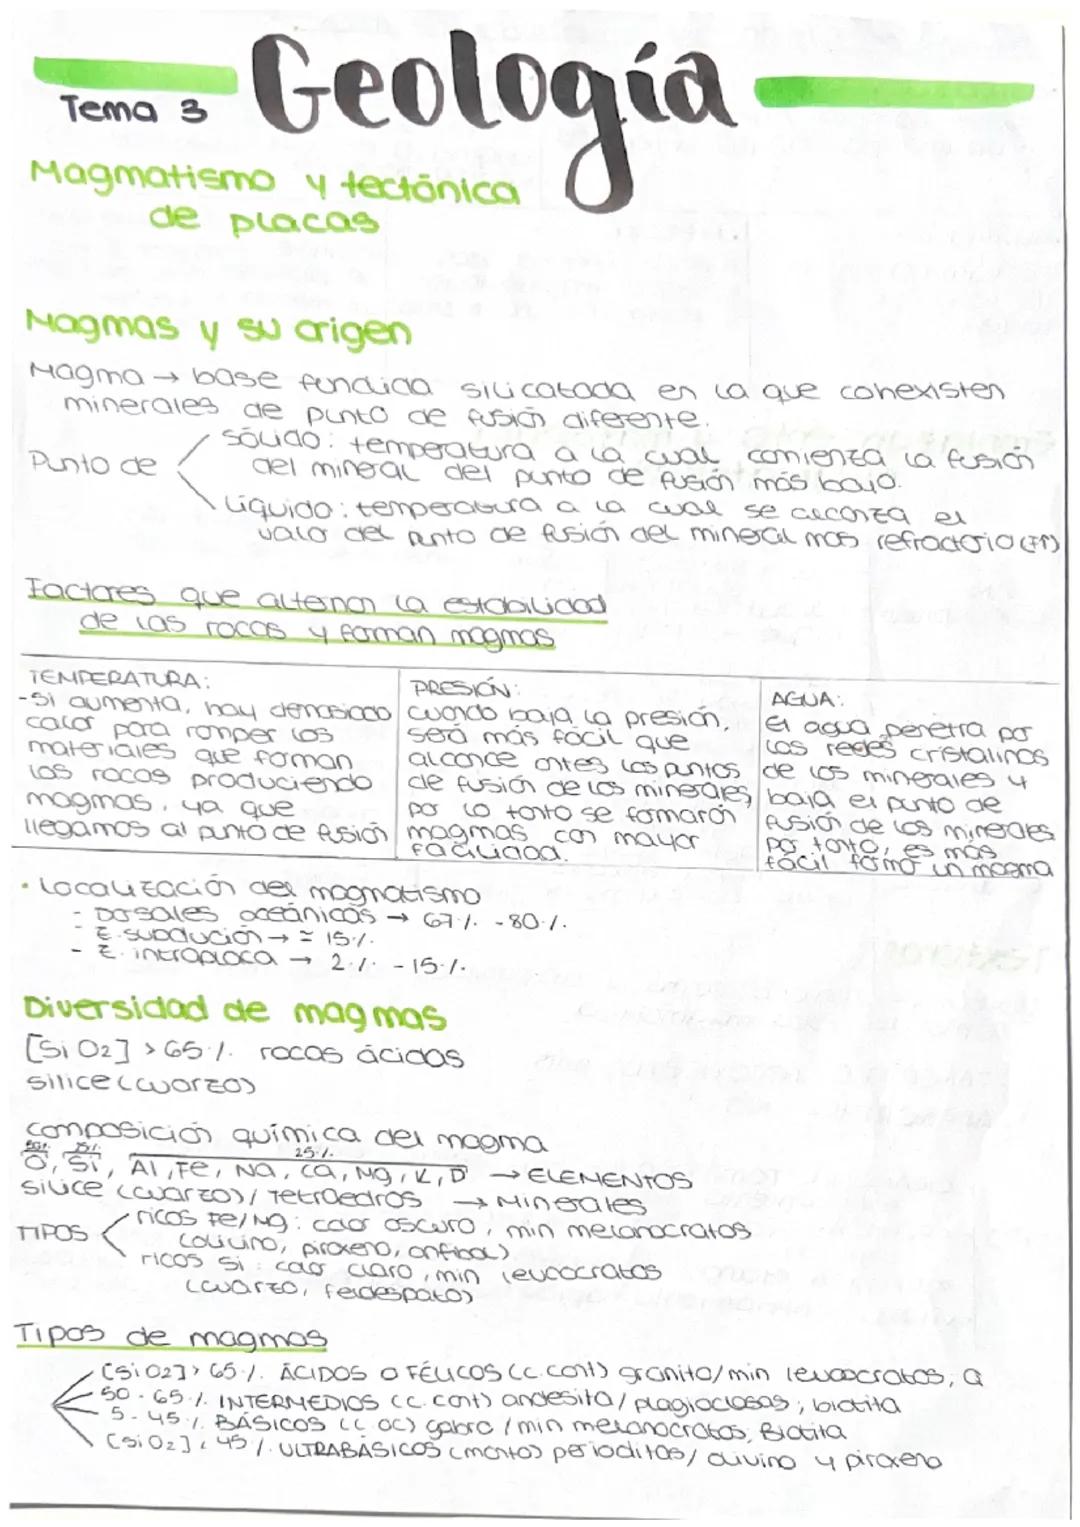 Geología
Tema 3
Magmatismo y tectónica
de placas
Magmas y su origen
Magma → base fundida silicatada en la que cohexisten
minerales de punto de fusión diferente.
Punto de
sólido: temperatura a la cual comienza la fusión
del mineral del punto de fusión más bajo.
líquido: temperatura a la cual se alcanza el
valor del punto de fusión del mineral más refractario
Factores que alteran la estabilidad
de las rocas y forman magmas
TEMPERATURA:
-Si aumenta, hay demasiado
calor para romper los
materiales que forman
las rocas produciendo
magmas, ya que
llegamos al punto de fusión
PRESIÓN:
cuando baja la presión,
será más fácil que
alcance antes los puntos
de fusión de los minerales,
por lo tanto se formarán
magmas con mayor
facilidad.
AGUA:
El agua penetra por
las redes cristalinas
de los minerales y
baja el punto de
fusión de los minerales
por tanto, es más
fácil formar un magma
· Localización del magmatismo
- Dorsales oceánicas → 67% - 80%.
- Z. subdución → ≃ 15%.
- Z. intraplaca → 2% - 15%.
Diversidad de magmas
[SiO2] > 65% rocas ácidas
sílice (cuarzo)
composición química del magma
50% 25% 25%
O, Si, Al, Fe, Na, Ca, Mg, K, → ELEMENTOS
sílice (cuarzo) / Tetraedros → Minerales
TIPOS
ricos Fe/Mg: color oscuro, min melanocratos
(olivino, piroxeno, anfíbol)
ricos si: color claro, min leucocratos
(cuarzo, feldespato)
Tipos de magmas
[SiO2] > 65% ÁCIDOS O FÉLICOS (c.cont) granito/min leucocratos, Q
50 - 65% INTERMEDIOS (c.cont) andesita / plagioclasas; biotita
5 - 45% BÁSICOS (c.oc) gabro / min melanocratos; Biotita
[SiO2] < 45% ULTRABÁSICOS (manto) perioditas / olivino y piroxeno